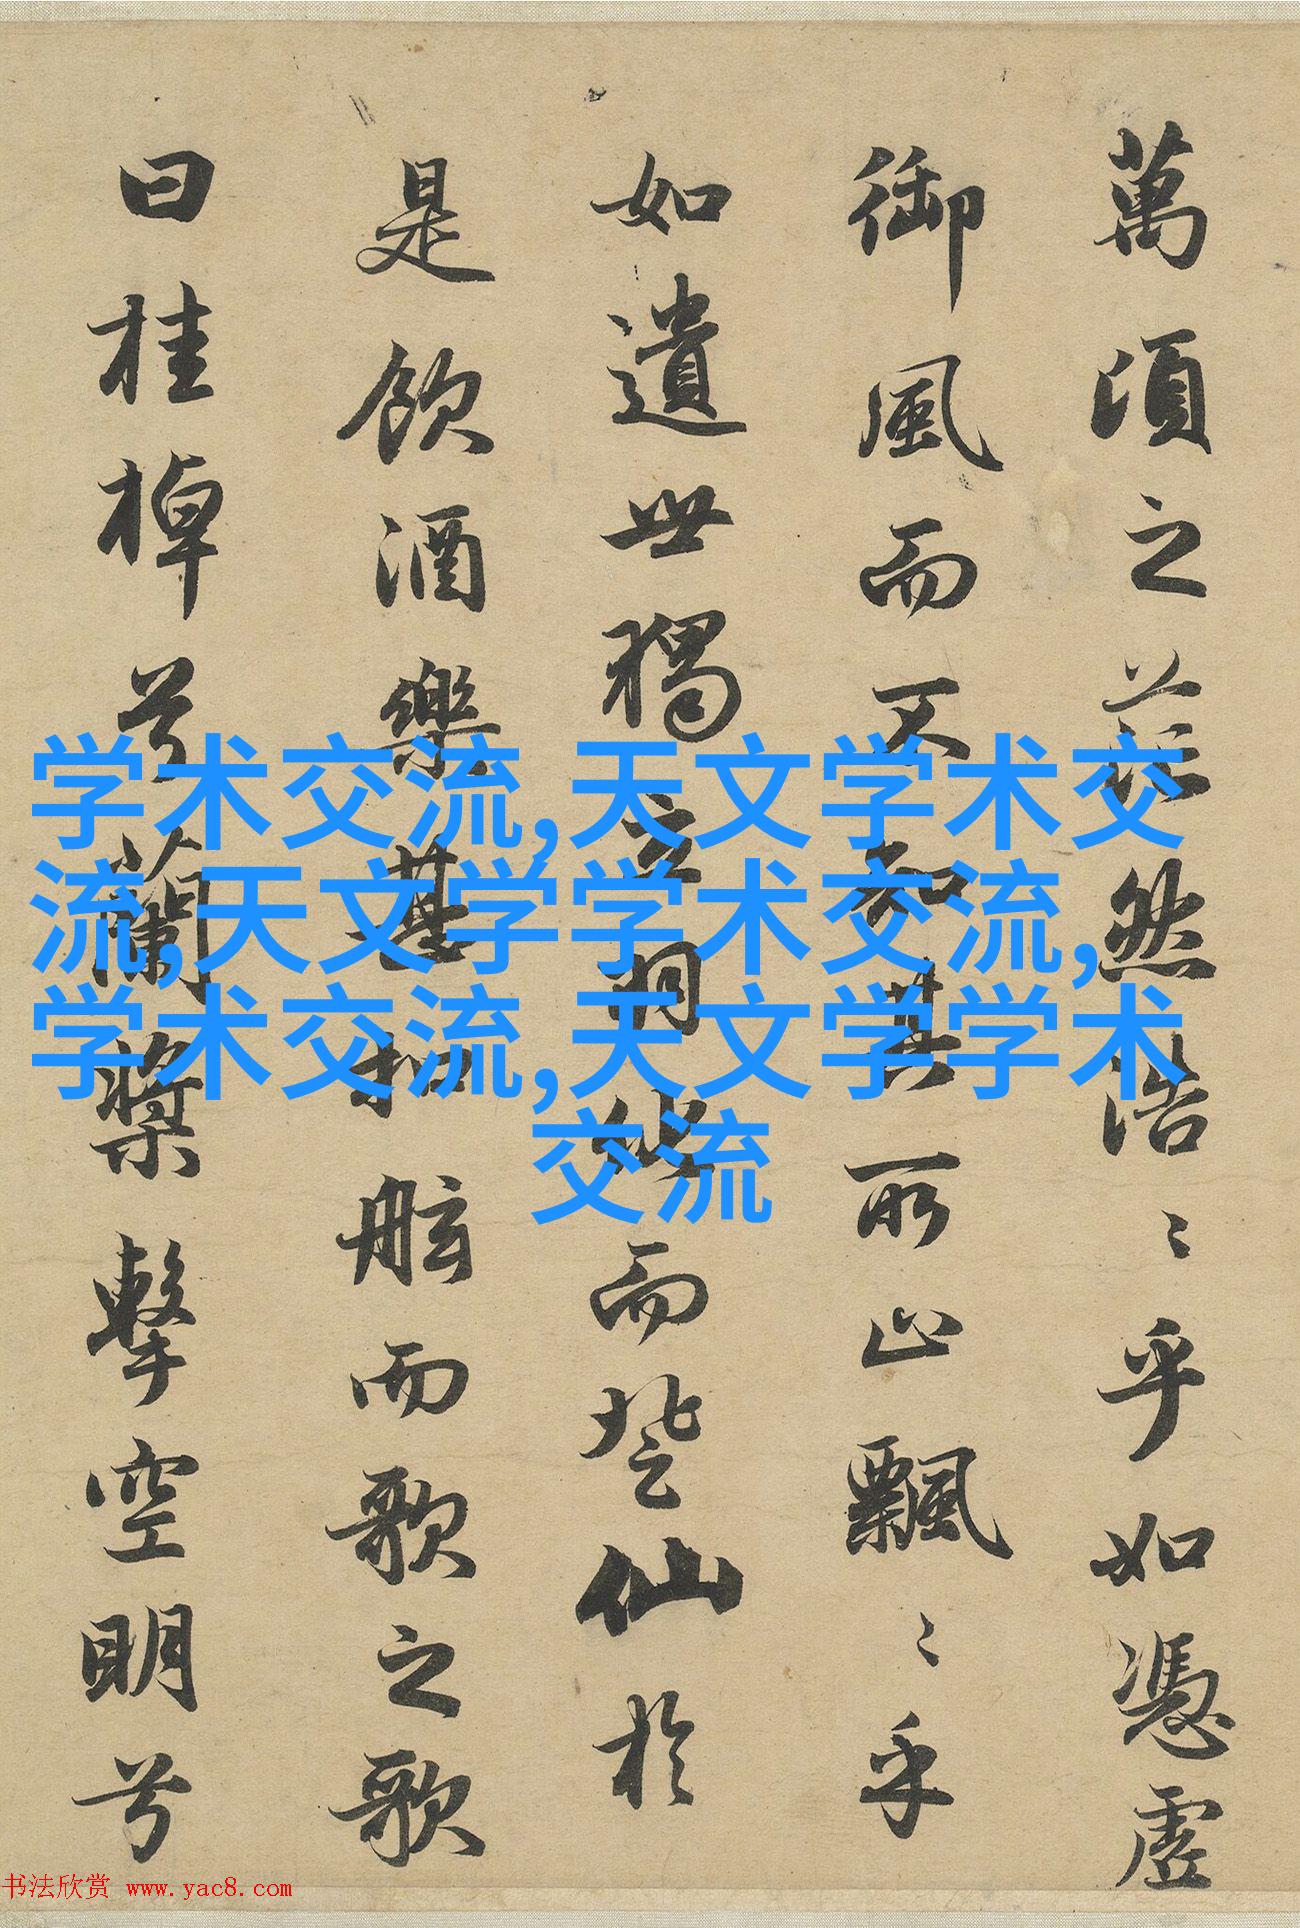 萬頃之茫然浩〻乎如馮虛
御風而不知其所止飄〻乎
如遺世獨立羽化而登仙於
是飲酒樂甚扣舷而歌之歌
曰桂棹兮蘭槳擊空明兮
学术交流,天文学术交
流,天文学学术交流,
学术交流,天文学学术
交流
书法欣赏 www.yac8.com